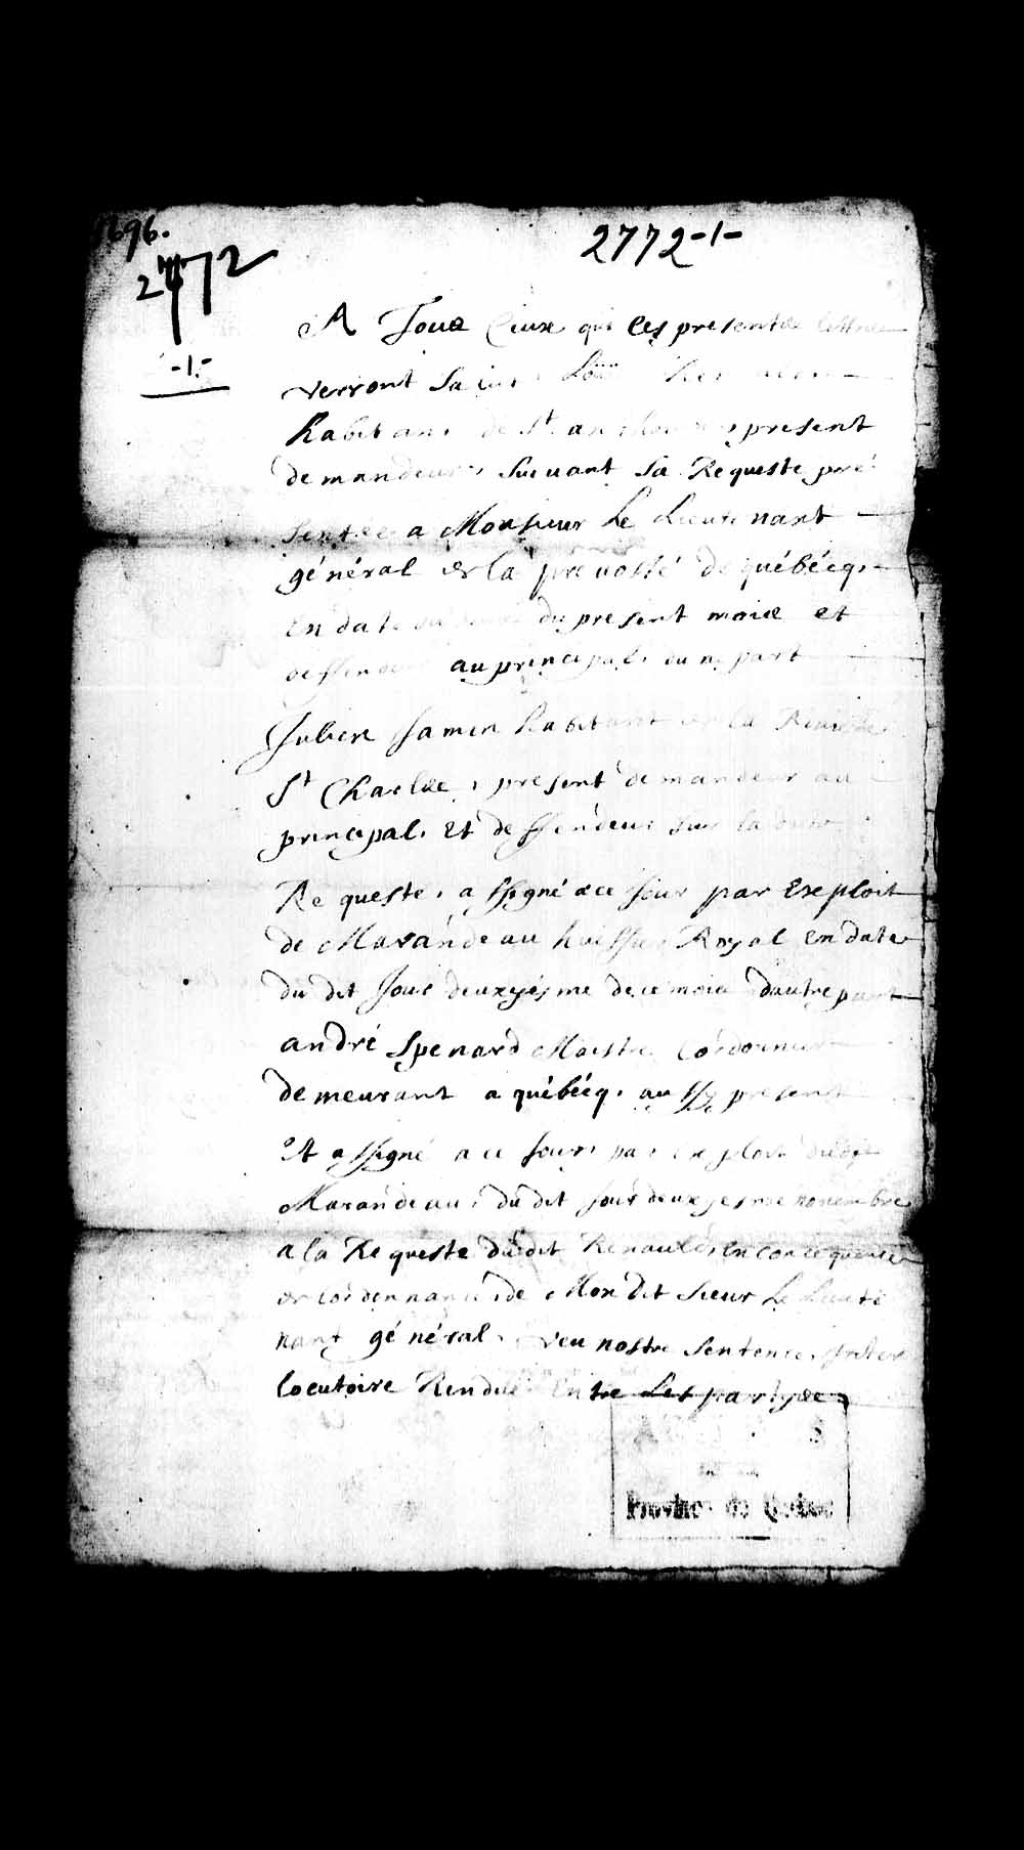 1696.
2772
-1-
2772-1-
A Tous Ceux qui ces presentes lettres
verront Salut
habitant de St present
demandeur suivant sa Requeste pre
sentee a Monsieur Le Lieutenant
général de la prevosté de québécq
En date du present mois et
deffendeur au principal d'une part
Julien Jamin habitant de la Riviere
St Charles, present demandeur au
principal, Et deffendeur sur la
Requeste, assigné a ce jour par Exploit
de Marandeau huissier Royal En date
du dit Jour deuxyesme de ce mois dautre part
andré Spenard Maistre Cordonnier
demeurant a québécq, aussy present
Et assigné a ce jour par exploit dudit
Marandeau, du dit jour deuxyesme novembre
a la Requeste dudit Renault, En consequence
de l'ordonnance de Mon dit Sieur Le Lieute
nant général, veu nostre Sentence Inter
locutoire Rendue Entre Les partyes
Province de Québec